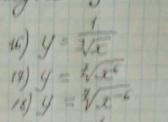 16) y = 1/∛x
17) y = ⁷√x⁶
18) y = ⁷√x⁻⁶